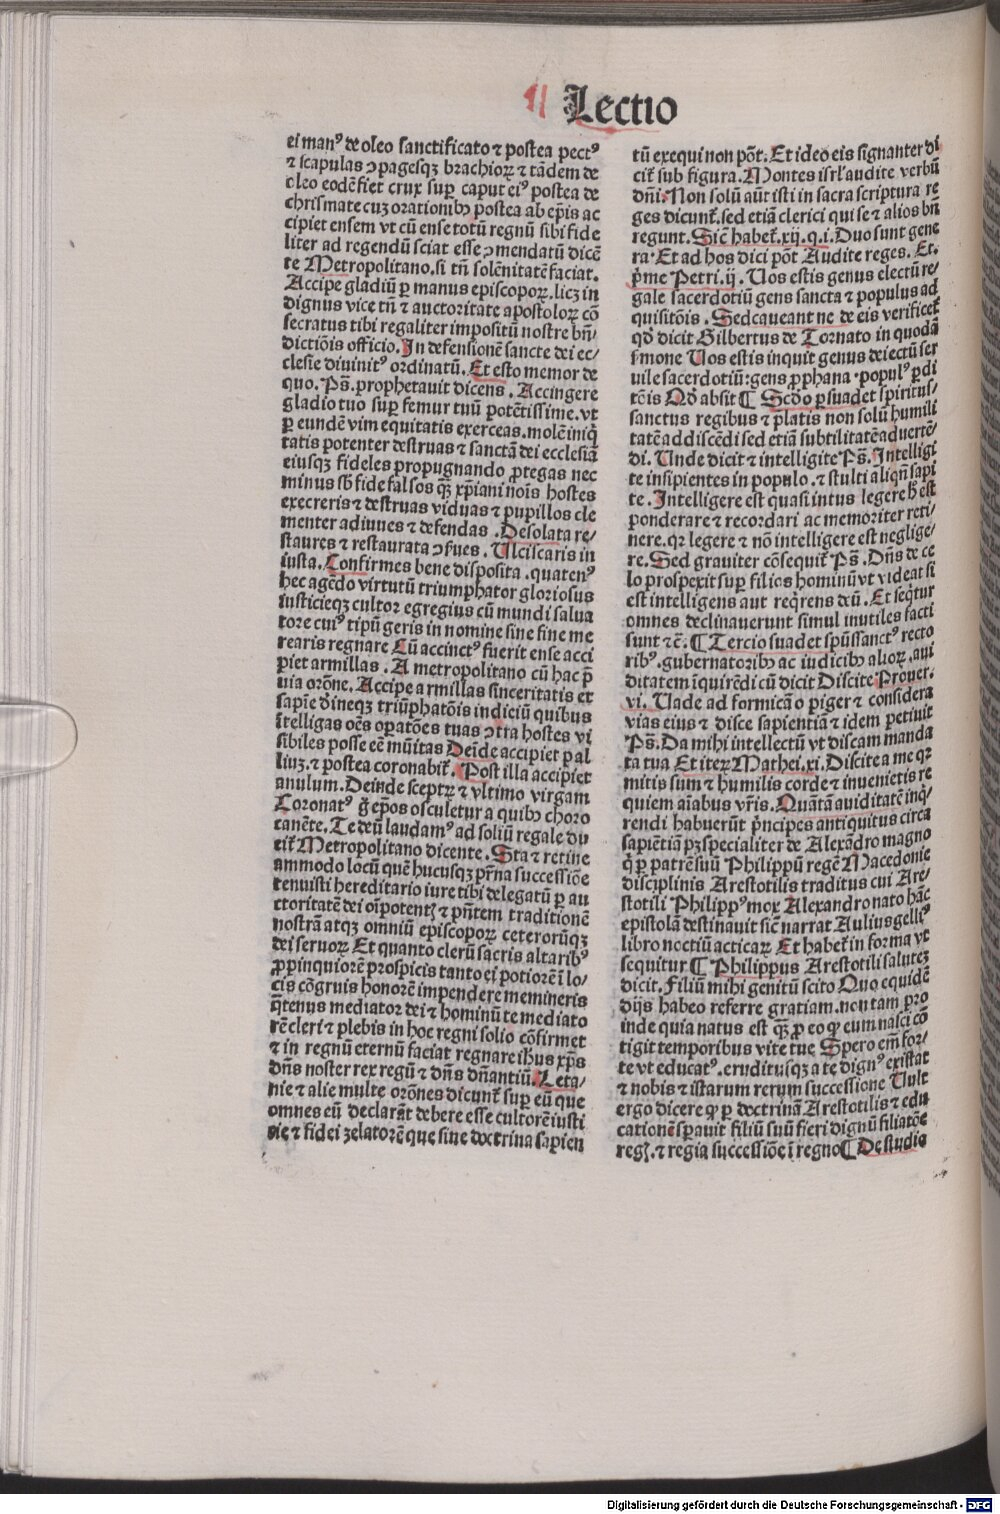 ¶ Lectio
ei manꝰ de oleo sanctificato ⁊ postea pectꝰ
⁊ scapulas ꝯpagesqꝫ brachioꝝ ⁊ tādem de
oleo eodē fiet crux suꝑ caput eiꝰ postea de
chrismate cuꝫ orationibꝫ postea ab eꝑis ac
cipiet ensem vt cū ense totū regnū sibi fide
liter ad regendū sciat esse ꝯmendatū dicē
te Metropolitano. si tn̄ solēnitatē faciat.
Accipe gladiū ꝑ manus episcopoꝝ. licꝫ in
dignus vice tn̄ ⁊ auctoritate apostoloꝝ cō
secratus tibi regaliter impositū nostre bn̄⸗
dictiōis officio. In defensionē sancte dei ec⸗
clesie diuinitꝰ ordinatū. Et esto memor de
quo. Pš. prophetauit dicens. Accingere
gladio tuo suꝑ femur tuū potētissime. vt
ꝑ eundē vim equitatis exerceas. molē iniq̄
tatis potenter destruas ⁊ sanctā dei ecclesiā
eiusqꝫ fideles propugnando ꝓtegas nec
minus sb̄ fide falsos qꝫ̄ xp̄iani nois̄ hostes
execreris ⁊ destruas viduas ⁊ pupillos cle
menter adiuues ⁊ defendas. Desolata re⸗
staures ⁊ restaurata ꝯserues. Ulciscaris in
iusta. Confirmes bene disposita. quatenꝰ
hec agēdo virtutū triumphator gloriosus
iusticieqꝫ cultor egregius cū mundi salua
tore cuiꝰ tipū geris in nomine sine fine me
rearis regnare Cū accinctꝰ fuerit ense acci
piet armillas. A metropolitano cū hac p̄
uia orōne. Accipe armillas sinceritatis et
sapiē dineqꝫ triūphatōis indiciū quibus
ītelligas oēs oꝑatōes tuas ꝯtra hostes vi
sibiles posse eē mūitas Deīde accipiet pal
liuꝫ. ⁊ postea coronabiť. Post illa accipiet
anulum. Deinde sceptꝝ ⁊ vltimo virgam
Coronatꝰ ḡ ep̄os osculetur a quibꝫ choro
canēte. Te deū laudamꝰ ad soliū regale du
ciť Metropolitano dicente. Sta ⁊ retine
ammodo locū quē hucusqꝫ pr̄na successiōe
tenuisti hereditario iure tibi delegatū ꝑ au
ctoritatē dei oīpotentꝭ ⁊ pn̄tem traditionē
nostrā atqꝫ omniū episcopoꝝ ceterorūqꝫ
dei seruoꝝ Et quanto clerū sacris altaribꝰ
ꝓpinquiorē prospicis tanto ei potiorē ī lo⸗
cis cōgruis honorē impendere memineris
q̄tenus mediator dei ⁊ hominū te mediato
rē cleri ⁊ plebis in hoc regni solio cōfirmet
⁊ in regnū eternū faciat regnare ihūs xp̄s
dn̄s noster rex regū ⁊ dn̄s dn̄antiū. Leta⸗
nie ⁊ alie multe orōnes dicunť suꝑ eū que
omnes eū declarāt debere esse cultorē iusti
cie ⁊ fidei zelatorē que sine doctrina sapien
tū exequi non pōt. Et ideo eis signanter di
ciť sub figura. Montes isrl̄ audite verbū
dn̄i. Non solū aūt isti in sacra scriptura re
ges dicunť. sed etiā clerici qui se ⁊ alios bn̄
regunt. Sic̄ habeť. xij. q. i. Duo sunt gene
ra. Et ad hos dici pōt Audite reges. Et.
p̄me Petri. ij. Uos estis genus electū re⸗
gale sacerdotiū gens sancta ⁊ populus ad
quisitōis. Sed caueant ne de eis verificeť
qđ dicit Gilbertus de Tornato in quodā
s̄mone Uos estis inquit genus deiectū ser
uile sacerdotiū: gens ꝓphana. populꝰ ꝑdi
tōis Qđ absit ¶ Scđo ꝑsuadet spiritus⸗
sanctus regibus ⁊ p̄latis non solū humili
tatē addiscēdi sed etiā subtilitatē aduertē⸗
di. Unde dicit ⁊ intelligite Pš. Intelligi
te insipientes in populo. ⁊ stulti aliqn̄ sapi
te. Intelligere est quasi intus legere h̄ est
ponderare ⁊ recordari ac memoriter reti⸗
nere. qꝛ legere ⁊ nō intelligere est neglige⸗
re. Sed grauiter cōsequiť Pš. Dn̄s de ce
lo prospexit suꝑ filios hominū vt videat si
est intelligens aut req̄rens deū. Et seq̄tur
omnes declinauerunt simul inutiles facti
sunt ⁊c̄. ¶ Tercio suadet spūssanctꝰ recto
ribꝰ. gubernatoribꝫ ac iudicibꝫ alioꝝ. aui
ditatem īquirēdi cū dicit Discite Prouer.
vi. Uade ad formicā o piger ⁊ considera
vias eius ⁊ disce sapientiā ⁊ idem petiuit
Pš. Da mihi intellectū vt discam manda
ta tua Et iteꝝ Mathei. xi. Discite a me qꝛ
mitis sum ⁊ humilis corde ⁊ inuenietis re
quiem aīabus vr̄is. Quātā auiditatē inq̄⸗
rendi habuerūt p̄ncipes antiquitus circa
sapiētiā pꝫ specialiter de Alexādro magno
q̄ ꝑ patrē suū Philippū regē Macedonie
disciplinis Arestotilis traditus cui Are⸗
stotili Philippꝰ mox Alexandro nato hāc
epistolā destinauit sic̄ narrat Aulius gelliꝰ
libro noctiū acticaꝝ Et habeť in forma vt
sequitur ¶ Philippus Arestotili salutez
dicit. Filiū mihi genitū scito Quo equidē
dijs habeo referre gratiam. non tam pro
inde quia natus est qꝫ̄ ꝓ eo ꝙ eum nasci cō
tigit temporibus vite tue Spero em̄ for⸗
te vt educatꝰ. eruditusqꝫ a te dignꝰ existat
⁊ nobis ⁊ istarum rerum successione Uult
ergo dicere ꝙ ꝑ doctrinā Arestotilis ⁊ edu
cationē sꝑauit filiū suū fieri dignū filiatōe
regꝭ. ⁊ regia successiōe ī regno ¶ De studio
Digitalisierung gefördert durch die Deutsche Forschungsgemeinschaft - DFG